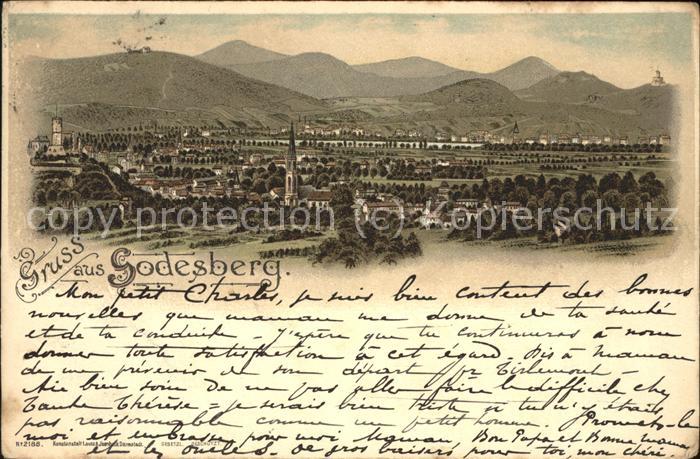 copyright protection © Kopierschutz
Gruss
aus Godesberg.
Mon petit Charles, je suis bien content des bonnes
nouvelles que maman me donne de ta santé
et de ta conduite - J'espère que tu continueras à nous
donner toute satisfaction à cet égard. Dis à maman
de me prévenir de son départ pr Tirlemont -
Aie bien soin de ne pas aller faire le difficile chez
Tante Thérèse - je serais bien triste si tu n'y étais
pas raisonnable comme un petit homme. Promets-le
moi, et embrasse pour moi Maman, Bon Papa et Bonne maman
et les de gros baisers pour toi, mon chéri.
No 2188. Kunstanstalt Lautz & Darmstadt. GESETZL. GESCHÜTZT.